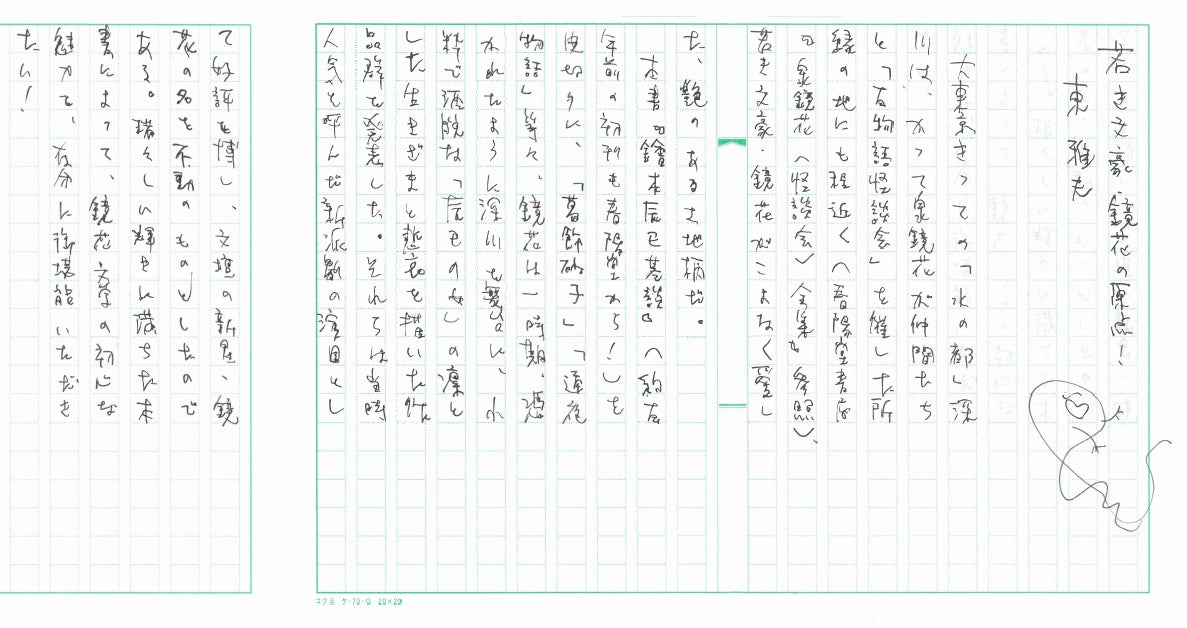 若き文豪・鏡花の原点!
東 雅夫
大東京きっての「水の都」深
川は、かつて泉鏡花が仲間たち
と「百物語怪談会」を催した所
縁の地にも程近く(春陽堂書店
の『泉鏡花〈怪談会〉全集』参照)、
若き文豪・鏡花がこよなく愛し
た、艶のある土地柄だ。
本書『繪本辰巳巷談』(約百
年前の初刊も春陽堂から!)を
皮切りに、「葛飾砂子」「通夜
物語」等々、鏡花は一時期、憑
かれたように深川を舞台に、小
粋で洒脱な「辰巳の女」の凛と
した生きざまと悲哀を描いた作
品群を発表した。それらは当時
人気を呼んだ新派劇の演目とし
て好評を博し、文壇の新星・鏡
花の名を不動のものとしたので
ある。瑞々しい輝きに満ちた本
書によって、鏡花文学の初心な
魅力を、存分に御堪能いただき
たい!
コクヨ ケ-70-G 20×20